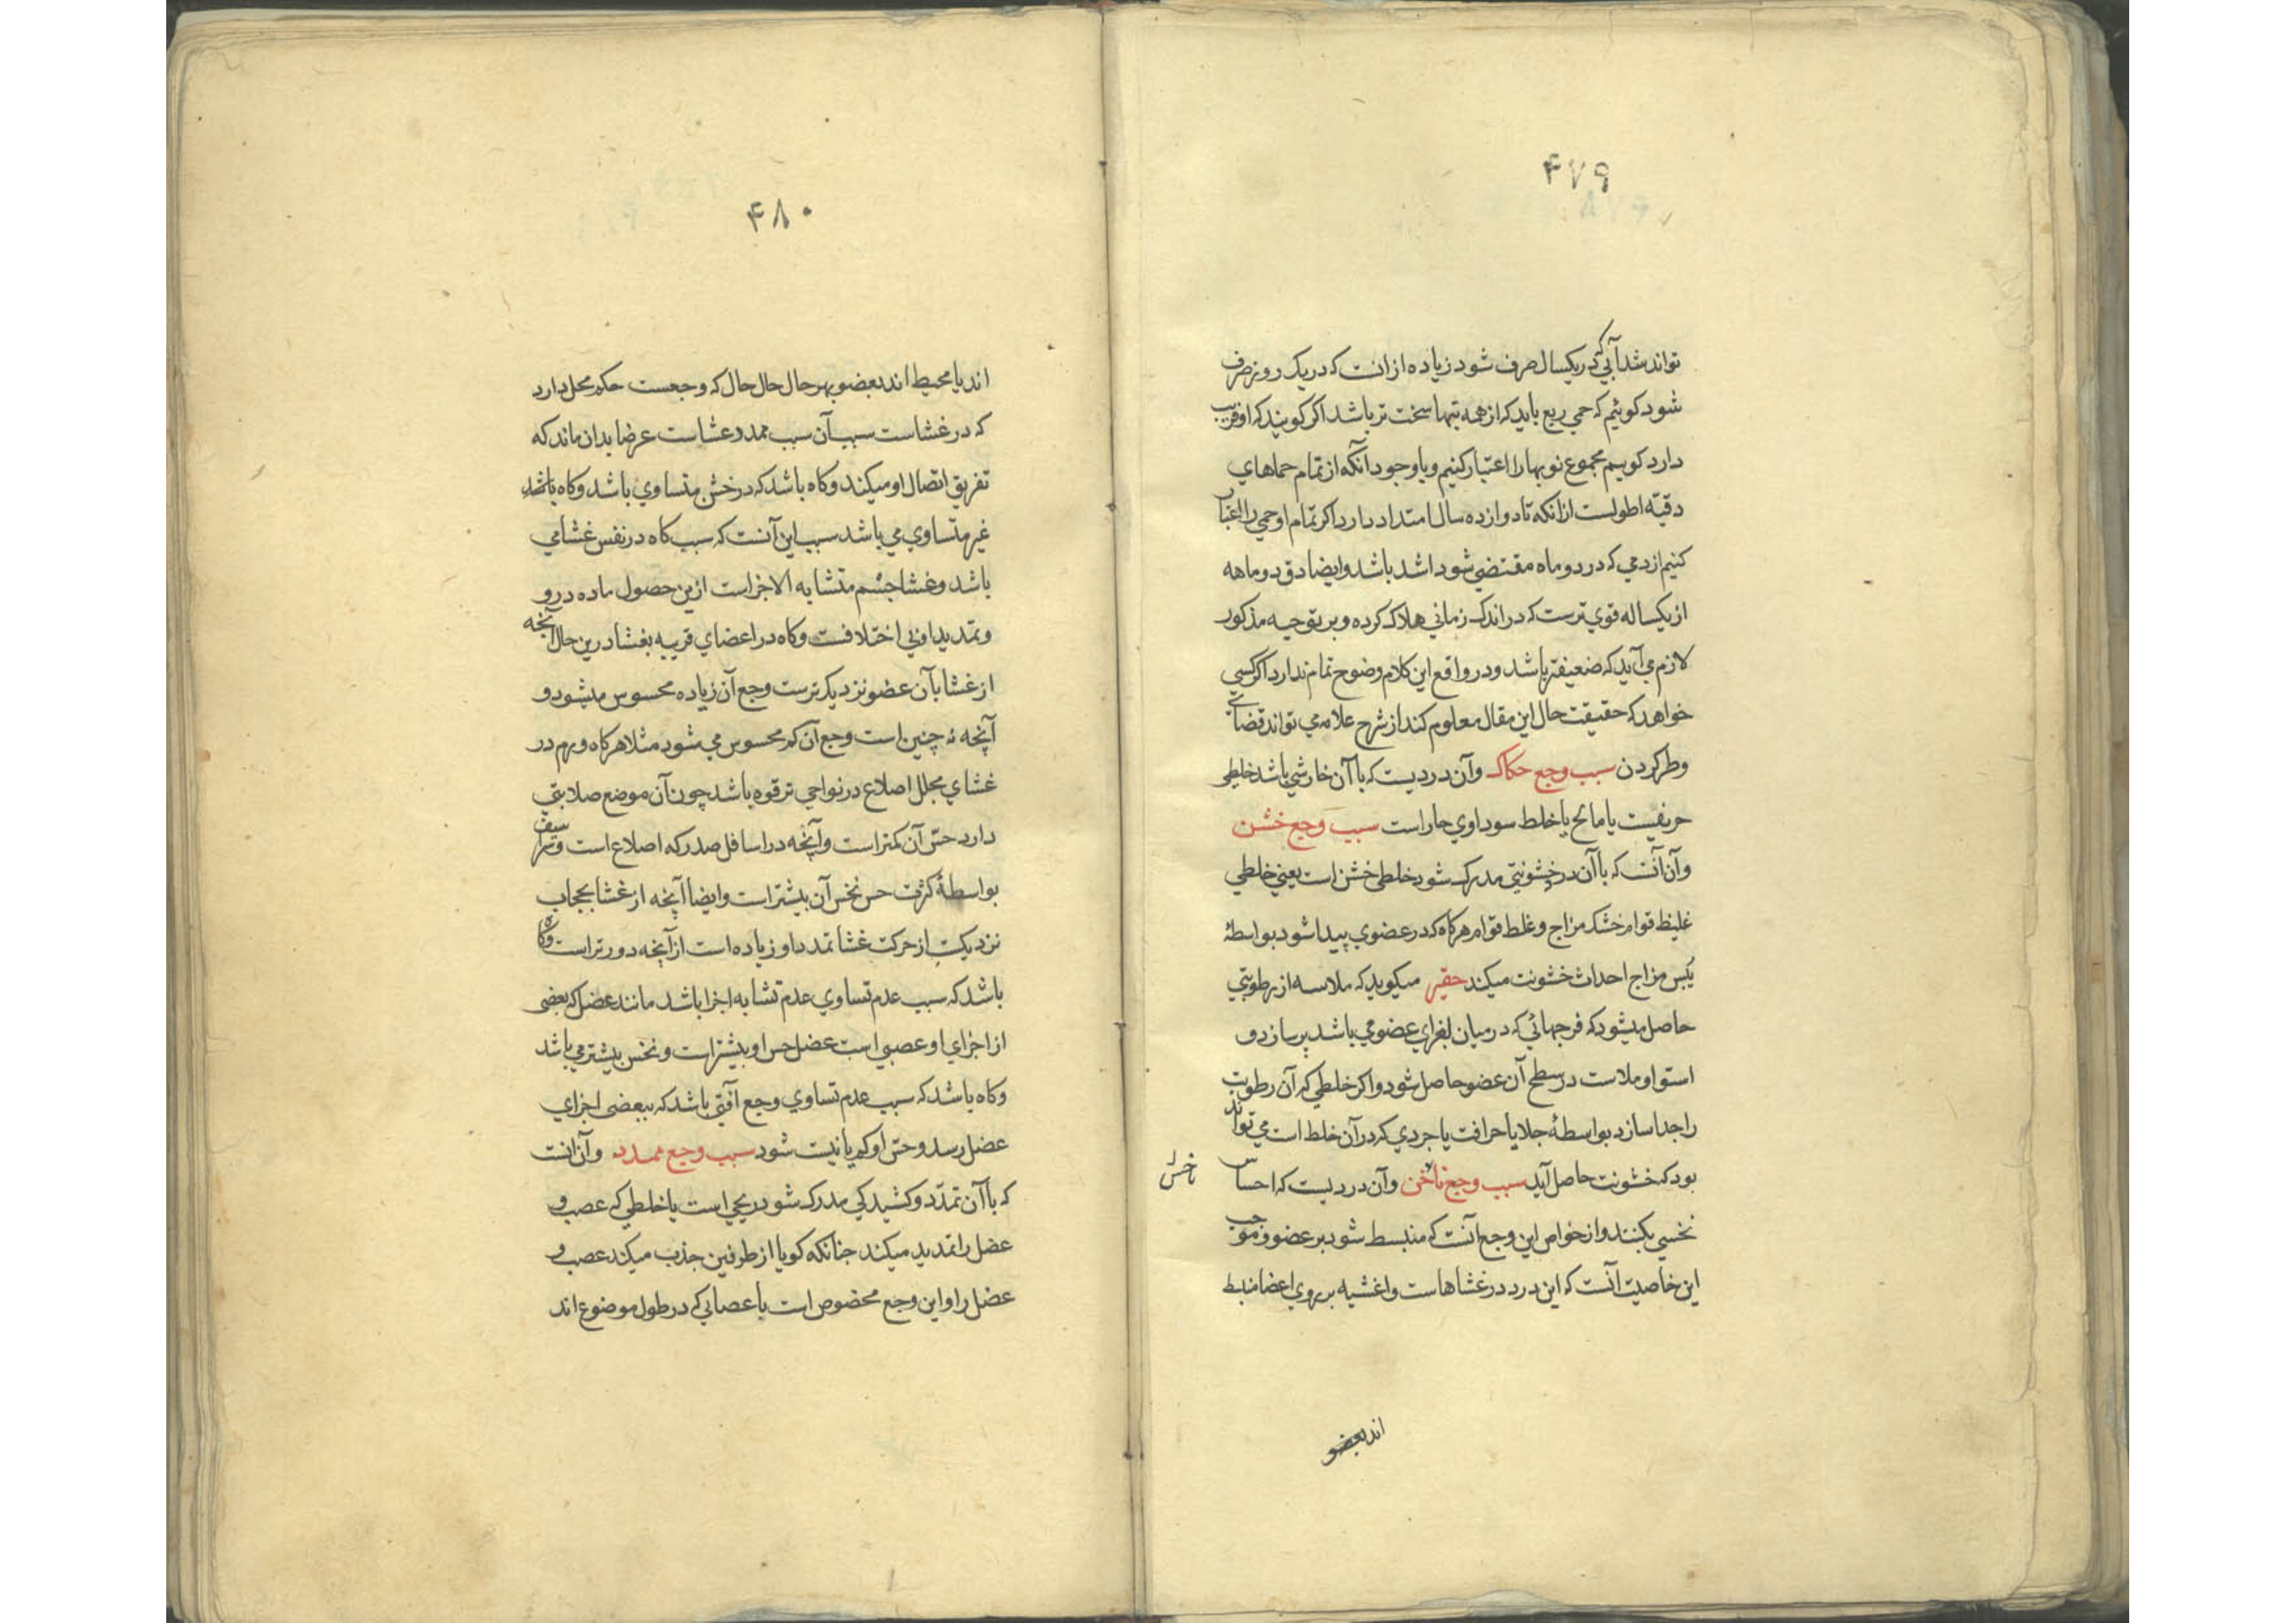 ۴۷۹
تواند شد آبی که در یکسال صرف شود زیاده ازانست که در یک روز صرف
شود کوئیم که حمی ربع باید که از همه تبها سخت تر باشد اکر کویند که او فریب
دارد کوییم مجموع نوبها را اعتبار کنیم و با وجود آنکه از تمام حماهای
دقیّه اطولست ازانکه تا دوازده سال امتداد دارد اکر تمام او حمی را اعتبار
کنیم از دمی که در دو ماه مقتضی شود اشد باشد و ایضا دق دو ماهه
از یکساله قوی ترست که در اندک زمانی هلاک کرده و بر توجیه مذکور
لازم می آید که ضعیفتر باشد و در واقع این کلام وضوح تمام ندارد اکر کسی
خواهد که حقیقت حال این مقال معلوم کند از شرح علامه می تواند قضائی
وطر کردن سبب وجع حکاک و آن دردیست که با آن خارشی باشد خلطی
حریفست یا مالح یا خلط سوداوی حار است سبب وجع خشن
و آن آنست که با آن درد خشونتی مدرک شود خلطی خشن است یعنی خلطی
غلیظ قوام خشک مزاج و غلط قوام هرکاه که در عضوی پیدا شود بواسطهٔ
یبس مزاج احداث خشونت میکند حقیر میکوید که ملاسه از رطوبتی
حاصل میشود که فرجهائی که در میان اجزای عضو می باشد پر سازد و
استوا و ملاست در سطح آن عضو حاصل شود و اکر خلطی که آن رطوبت
را جدا سازد بواسطهٔ جلا یا حرافت یا جردی که در آن خلط است می تواند
بود که خشونت حاصل آید سبب وجع ناخن و آن دردیست که احساس
ناخس
نخسی بکنند و از خواص این وجع آنست که منبسط شود بر عضو و موجب
این خاصیت آنست که این درد در غشاهاست و اغشیه بر روی اعضا منبسط
اند بعضو
۴۸۰
اند یا محیط اند بعضو بهر حال حال حال که وجعست حکم محل دارد
که در غشاست سبب آن سبب ممدد غشاست عرضا بدان ماند که
تفریق اتصال او میکند و کاه باشد که در خش متساوی باشد و کاه باشد
غیر متساوی می باشد سبب این آنست که سبب کاه در نفس غشا می
باشد و غشا جسم متشابه الاجزاست ازین حصول ماده در و
و تمدید او بی اختلافست و کاه در اعضای قریبه بغشا درین حال آنچه
از غشا بآن عضو نزدیکترست وجع آن زیاده محسوس میشود و
آنچه نه چنین است وجع آن کم محسوس می شود مثلا هرکاه ورم در
غشای مجلل اضلاع در نواحی ترقوه باشد چون آن موضع صلابتی
دارد حسّ آن کمتر است و آنچه در اسافل صدر که اضلاع است و شراسیف
بواسطهٔ کثرت حس نخس آن بیشتر است و ایضا آنچه از غشا بحجاب
نزدیکست از حرکت غشا تمدد او زیاده است از آنچه دورتر است و کاه
باشد که سبب عدم تساوی عدم تشابه اجزا باشد مانند عضل که بعضی
از اجزای او عصبی است عضل حس او بیشتر است و نخس بیشتر می باشد
و کاه باشد که سبب عدم تساوی وجع آفتی باشد که ببعضی اجزای
عضل رسد و حس او کم یا نیست شود سبب وجع ممدد و آن آنست
که با آن تمدّد و کشیدکی مدرک شود ریحی است یا خلطی که عصب و
عضل را تمدید میکند چنانکه کویا از طرفین جذب میکند عصب و
عضل را و این وجع مخصوص است با عصابی که در طول موضوع اند